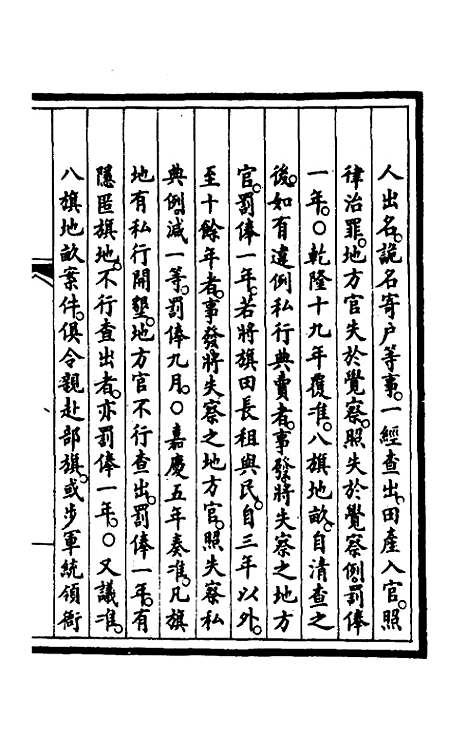 人出名。詭名寄户等事。一經查出。田產入官。照
律治罪。地方官失於覺察。照失於覺察例。罰俸
一年。○乾隆十九年覆准。八旗地畝。自清查之
後。如有違例私行典賣者。事發將失察之地方
官。罰俸一年。若將旗田長租與民。自三年以外。
至十餘年者。事發將失察之地方官。照失察私
典例。減一等。罰俸九月。○嘉慶五年奏准。凡旗
地有私行開墾。地方官不行查出。罰俸一年。有
隱匿旗地。不行查出者。亦罰俸一年。○又議准。
八旗地畝案件。俱令親赴部旗。或步軍統領衙